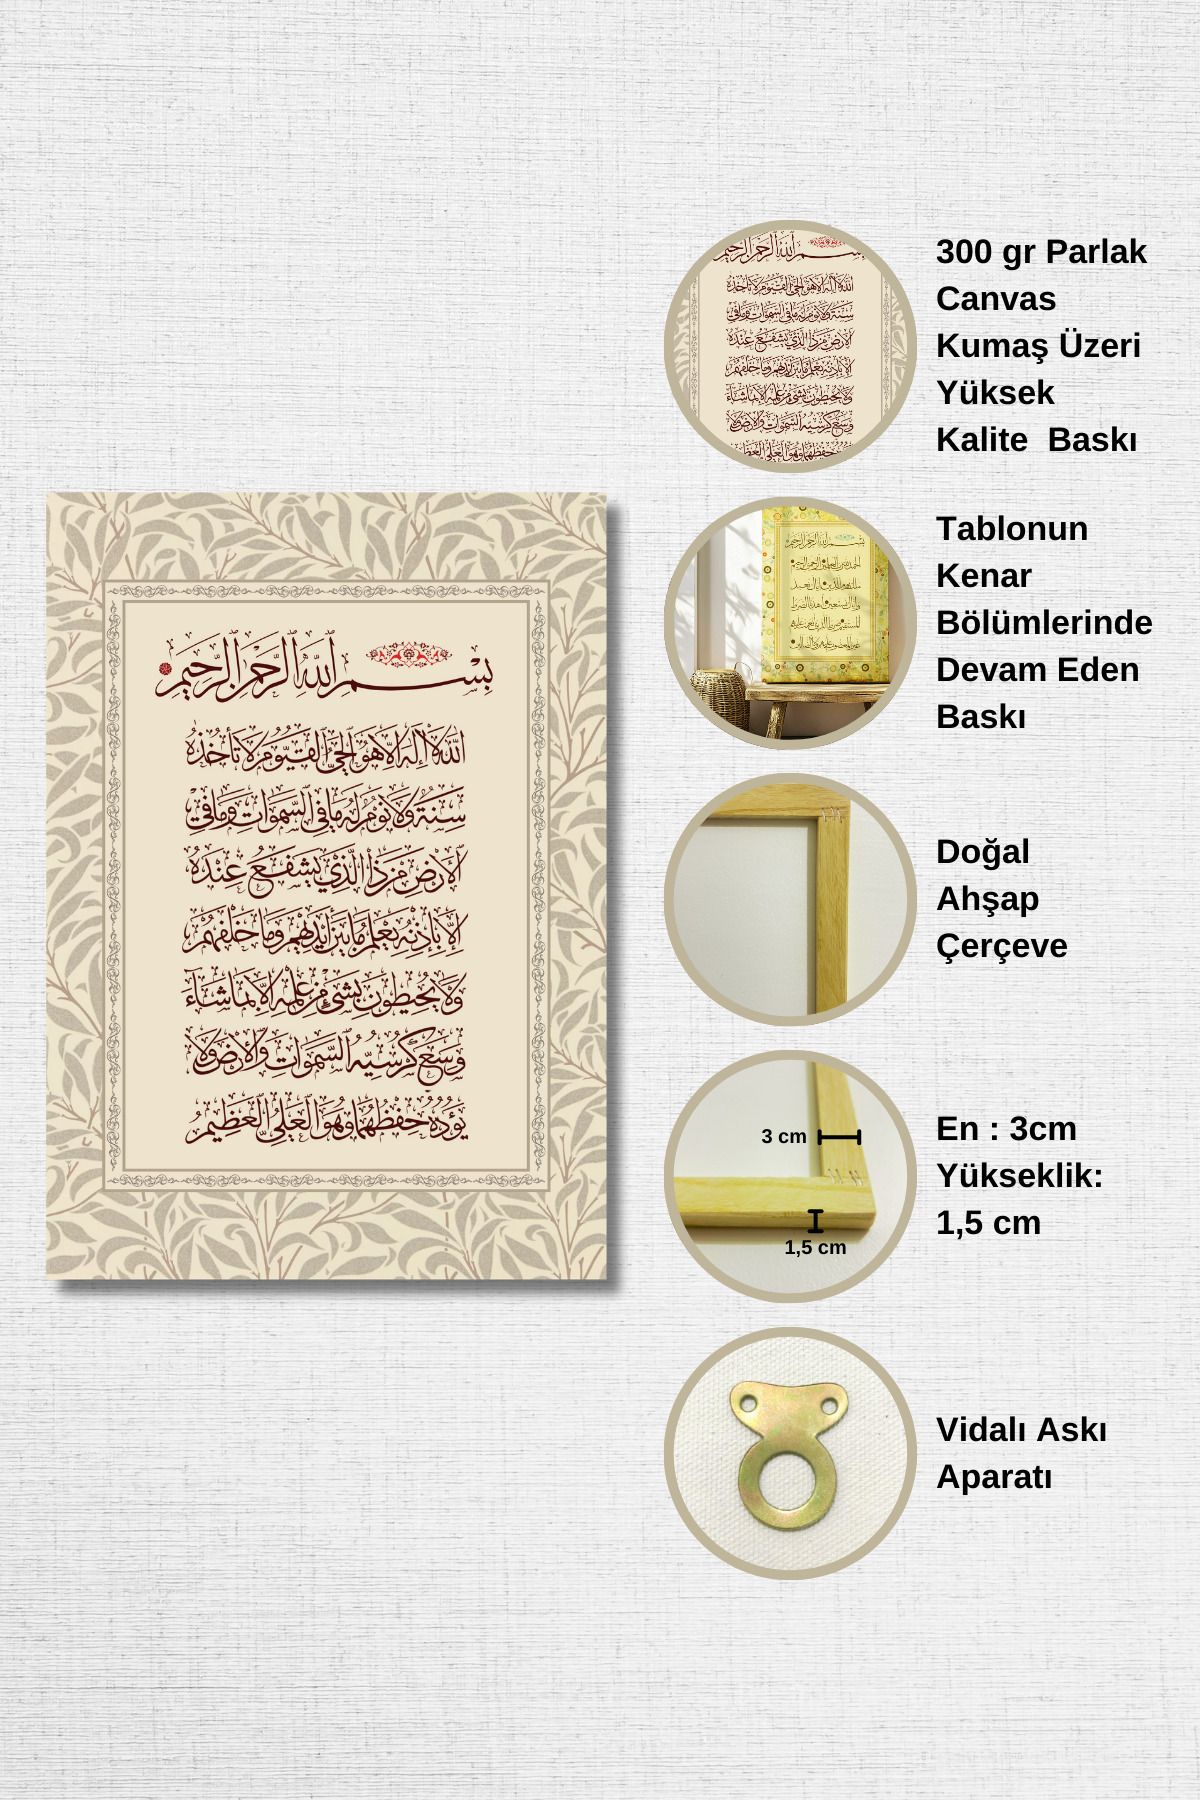 بسم الله الرحمن الرحيم
الله لا إله إلا هو الحي القيوم لا تأخذه
سنة ولا نوم له ما في السموات وما في
الأرض من ذا الذي يشفع عنده
إلا بإذنه يعلم ما بين أيديهم وما خلفهم
ولا يحيطون بشيء من علمه إلا بما شاء
وسع كرسيه السموات والأرض ولا
يؤده حفظهما وهو العلي العظيم
300 gr Parlak
Canvas
Kumaş Üzeri
Yüksek
Kalite  Baskı
Tablonun
Kenar
Bölümlerinde
Devam Eden
Baskı
Doğal
Ahşap
Çerçeve
3 cm
1,5 cm
En : 3cm
Yükseklik:
1,5 cm
Vidalı Askı
Aparatı